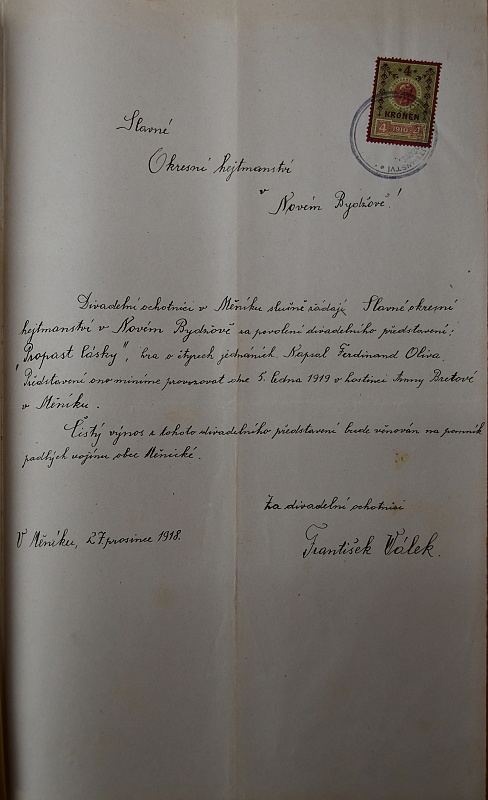 4
KRONEN
4 1910
Slavné
Okresní hejtmanství
v
Novém Bydžově!
Divadelní ochotníci v Měníku slušně žádají Slavné okresní
hejtmanství v Novém Bydžově za povolení divadelního představení:
"Propast lásky", hra o čtyrech jednáních. Napsal Ferdinand Oliva.
Představení ono míníme provozovat dne 5. ledna 1919 v hostinci Anny Bretové
v Měníku.
Čistý výnos z tohoto divadelního představení bude věnován na pomník
padlých vojínů obce Měnické.
Za divadelní ochotníci
V Měníku, 27 prosince 1918.
František Válek.